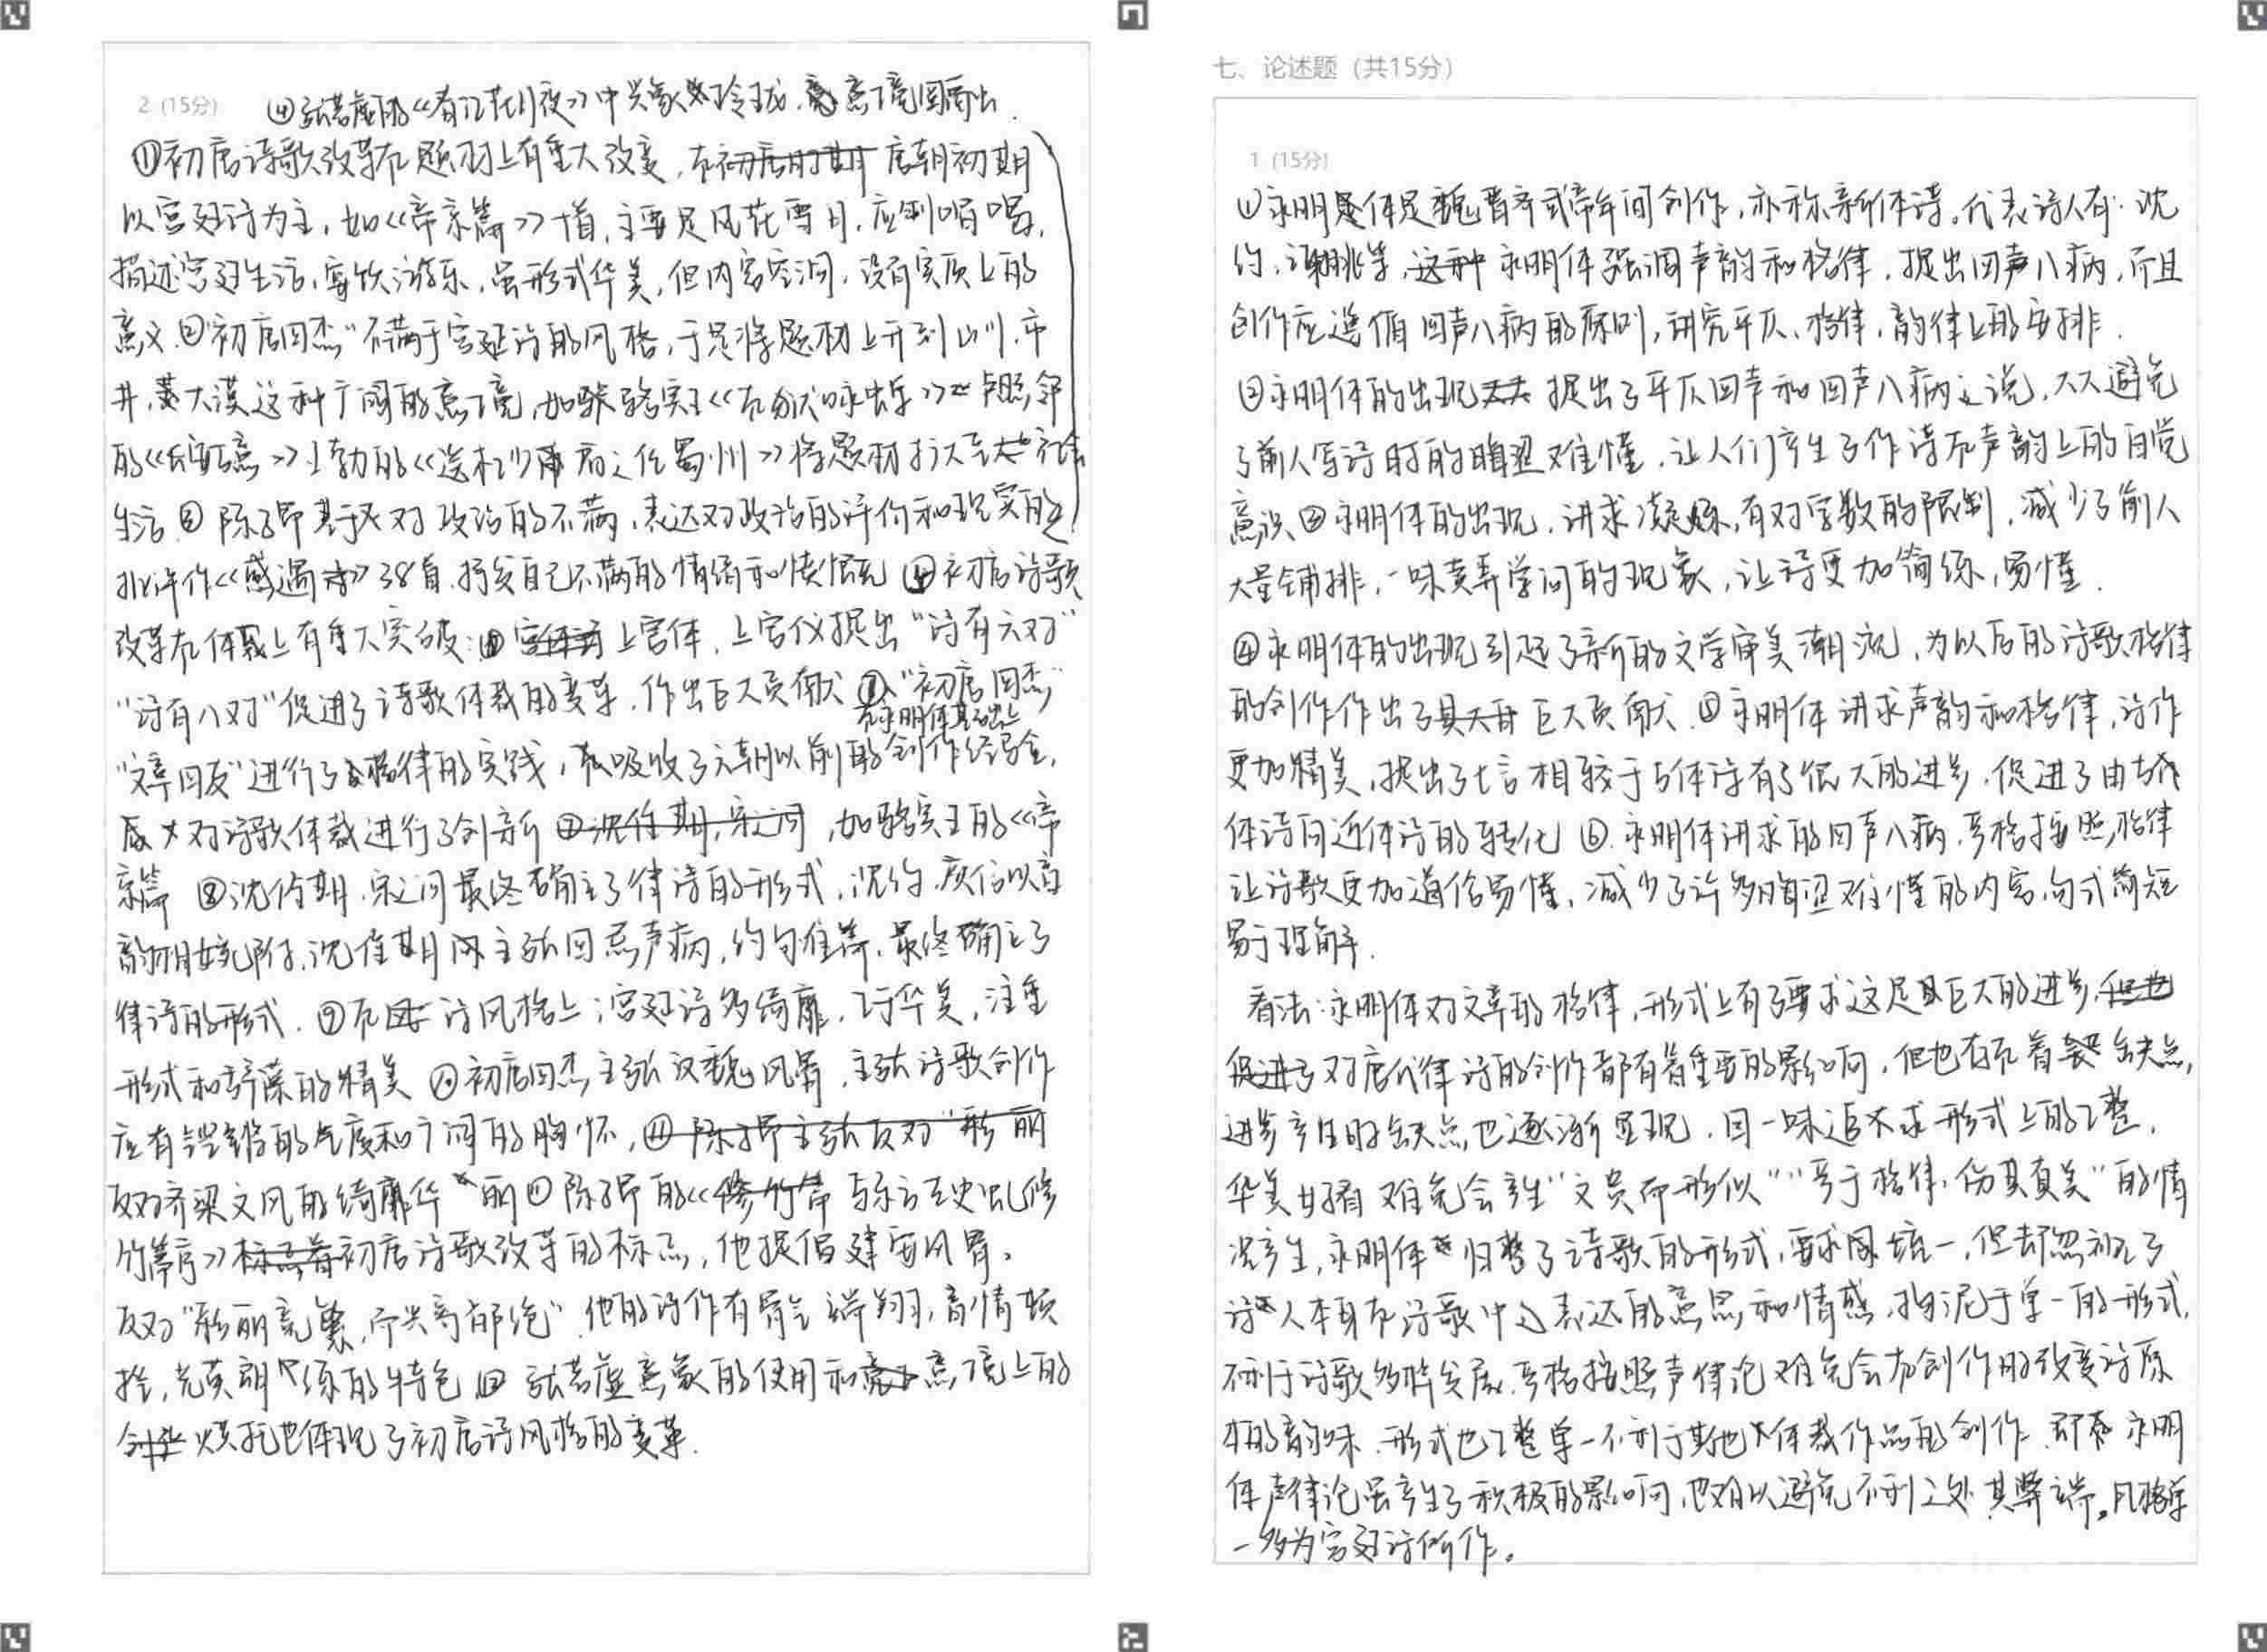 2 (15分)
④张若虚的《春江花月夜》中兴象玲珑,意境回而出.
①初唐诗歌改革在题材上有重大改变,在初唐时期唐朝初期
以宫廷诗为主,如《帝京篇》十首,主要是风花雪月,应制唱喝,
描述宫廷生活,宴饮游乐,虽形式华美,但内容空洞,没有实质上的
意义.②"初唐四杰"不满于宫廷诗的风格,于是将题材上升到山川,市
井,大漠这种广阔的意境,如骆宾王《在狱咏蝉》卢照邻
的《长安古意》王勃的《送杜少府之任蜀州》将题材扩大至社会
生活③陈子昂基于对政治的不满,表达对政治的评价和现实的
批评作《感遇诗》38首.抒发自己不满的情绪和愤慨 ④初唐诗歌
改革在体裁上有重大突破:上官体,上官仪提出"诗有六对"
"诗有八对"促进了诗歌体裁的变革,作出巨大贡献 "初唐四杰"
在永明体基础上
"文章四友"进行了格律的实践,吸收了六朝以前的创作经验,
对诗歌体裁进行了创新 ⑦沈佺期,宋之问,如骆宾王的《帝
京篇 ⑧沈佺期,宋之问最终确立了律诗的形式,沈约,庾信以音
韵相婉附,沈佺期主张回忌声病,约句准篇,最终确立了
律诗的形式.⑨在诗风格上:宫廷诗多绮靡,工于华美,注重
形式和辞藻的精美 ⑩初唐四杰主张汉魏风骨,主张诗歌创作
应有的气度和广阔的胸怀,⑪陈子昂主张反对"彩丽
反对齐梁文风的绮靡华丽⑪陈子昂的《修竹篇与东方左史虬修
竹篇序》标志着初唐诗歌改革的标志,他提倡建安风骨。
反对"彩丽竞繁,而兴寄都绝".他的诗作有骨气端翔,音情顿
挫,光英朗练的特色 ⑫张若虚意象的使用和意境上的
烘托也体现了初唐诗风格的变革.
七、论述题(共15分)
1 (15分)
①永明体是魏晋齐武帝年间创作,亦称新体诗。代表诗人有:沈
约,谢朓等,这种永明体强调声韵和格律,提出四声八病,而且
创作应遵循四声八病的原则,讲究平仄、格律,韵律上的安排.
②永明体的出现提出了平仄四声和四声八病之说,大大避免
了前人写诗时的晦涩难懂,让人们产生了作诗在声韵上的自觉
意识③永明体的出现,讲求凝练,有对字数的限制,减少了前人
大量铺排,一味卖弄学问的现象,让诗更加简练,易懂.
④永明体的出现引起了新的文学审美潮流,为以后的诗歌格律
的创作作出了巨大贡献.⑤永明体讲求声韵和格律,诗作
更加精美,提出了七言相较于古体诗有了很大的进步,促进了由古
体诗向近体诗的转化 ⑥.永明体讲求的四声八病.严格按照格律
让诗歌更加通俗易懂,减少了许多晦涩难懂的内容,句式简短
易于理解.
看法:永明体对文章的格律,形式上有了要求这是巨大的进步,但也
促进了对唐代律诗的创作都有着重要的影响,但也存在着缺点,
进步产生时缺点也逐渐显现.因一味追求形式上的工整,
华美好看难免会产生"文贵而形似""拘于格律,伤其真美"的情
况产生,永明体归整了诗歌的形式,要求统一,但却忽视了
诗人本身在诗歌中表达的意思和情感,拘泥于单一的形式,
不利于诗歌多样发展,严格按照声律论难免会在创作时改变诗原
本的韵味.形式也工整单一不利于其他体裁作品的创作.永明
体声律论虽产生了积极的影响,也难以避免不利之处其弊端。风格单
一多为宫廷诗所作。